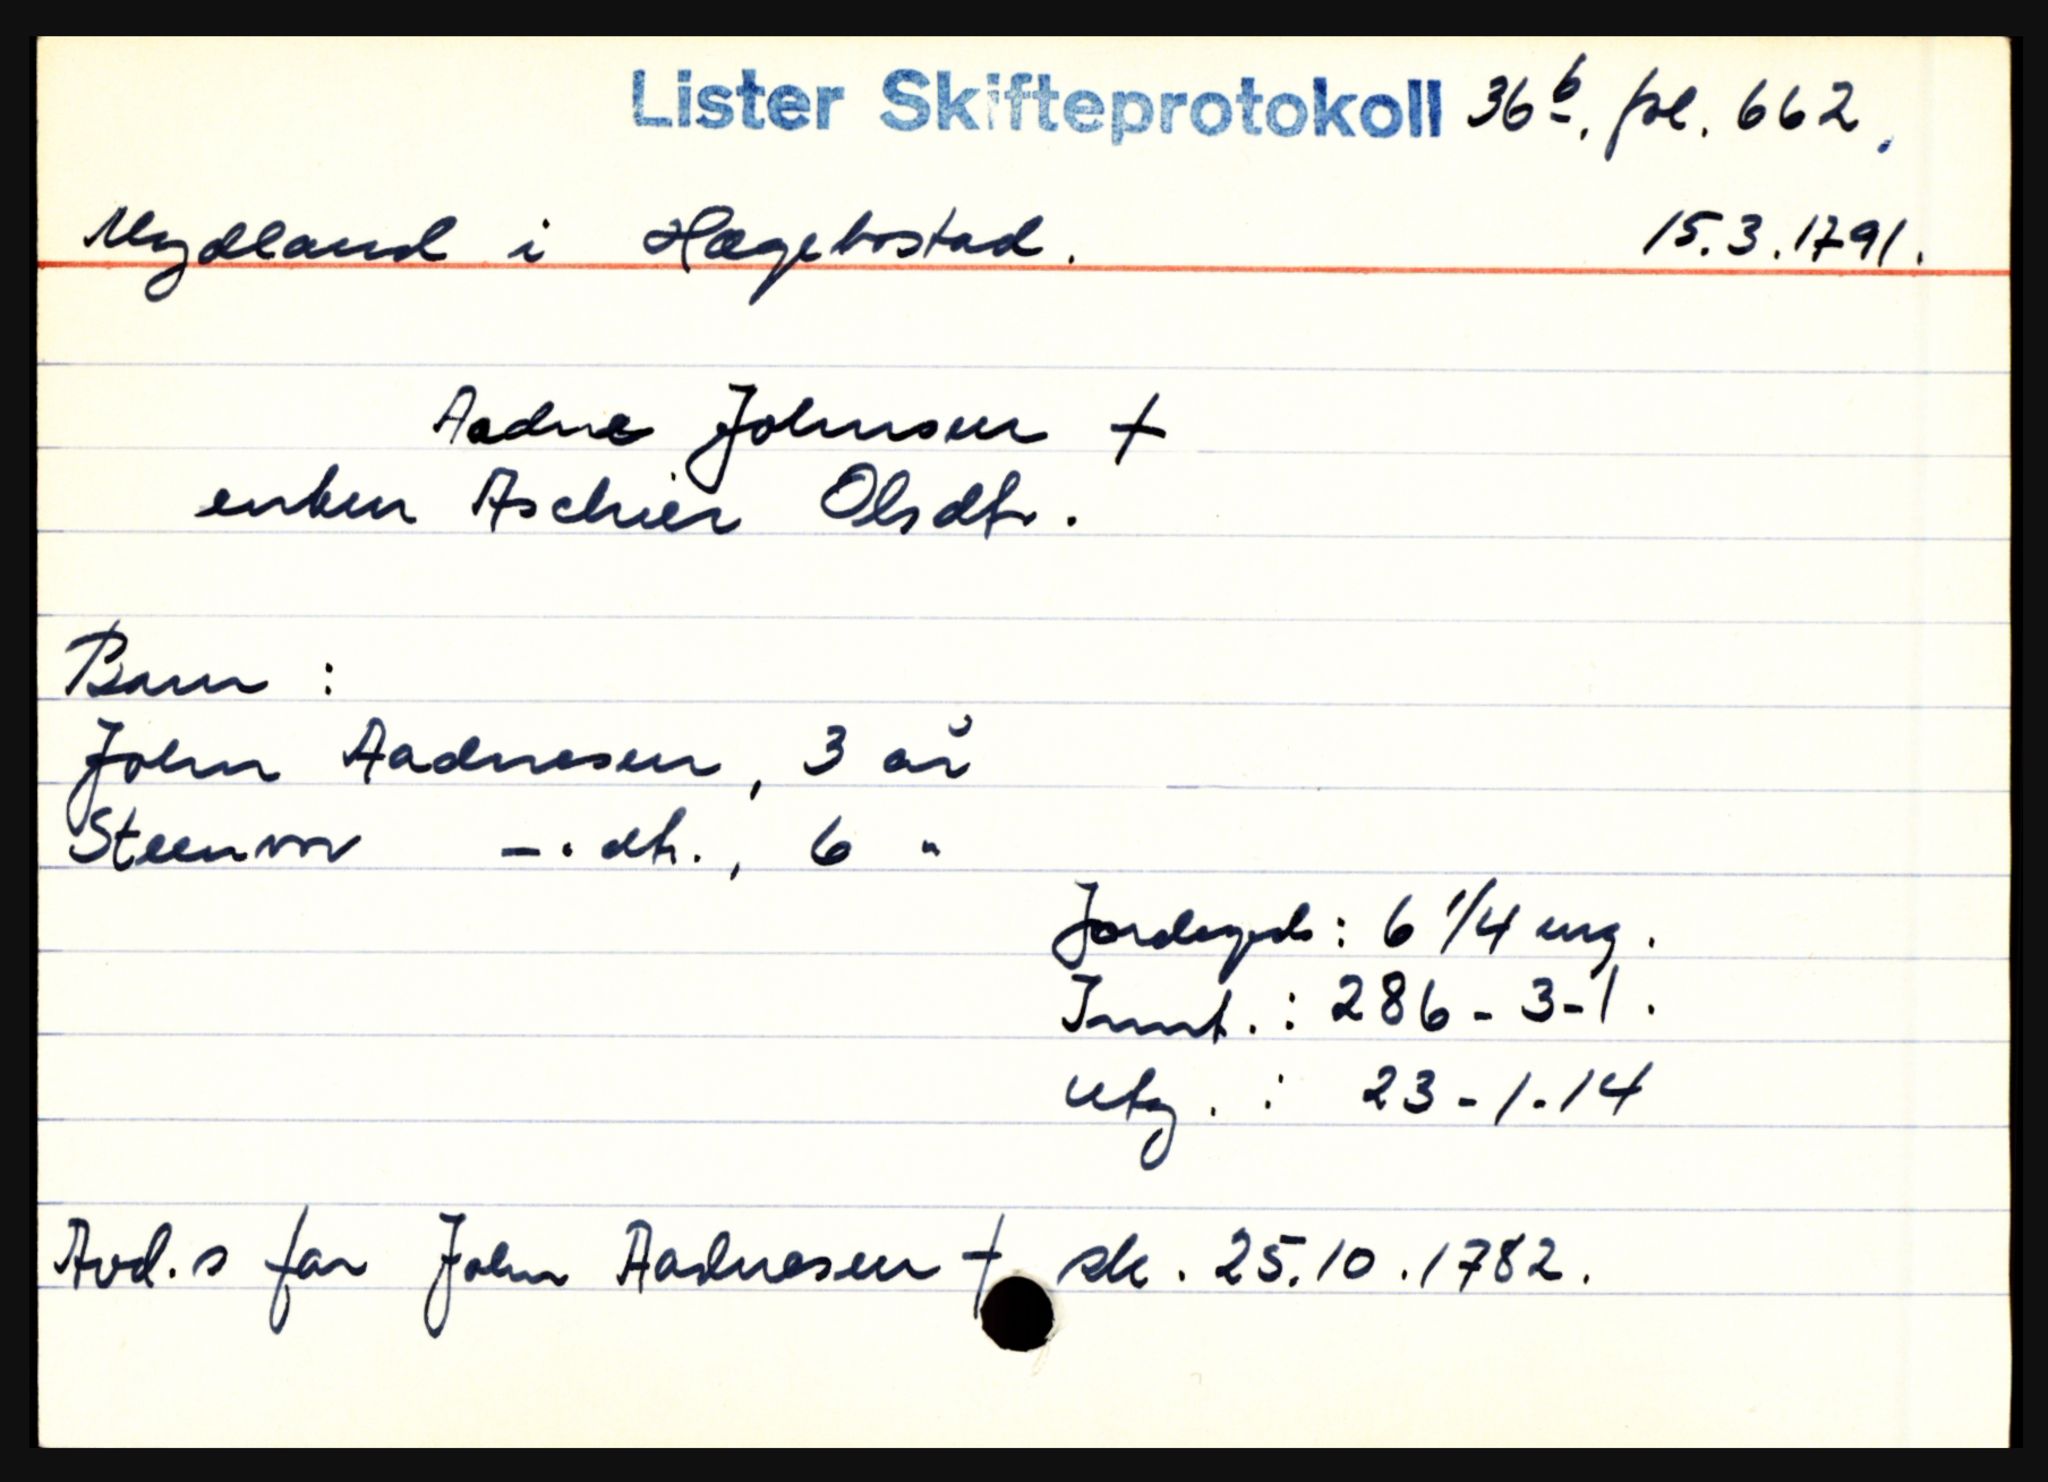 Lister Skifteprotokoll 36b. fol. 662.
Mydland i Hægebostad. 15.3.1791.
Aadne Johnsen †
enken Aschier Olsdtr.
Barn :
John Aadnesen, 3 år
Steenvor —. dtr., 6 "
Jordegods : 6 1/4 mrg.
Innt. : 286 - 3 - 1.
Utg. : 23 - 1 - 14
Avd.s far John Aadnesen † sk. 25.10.1782.